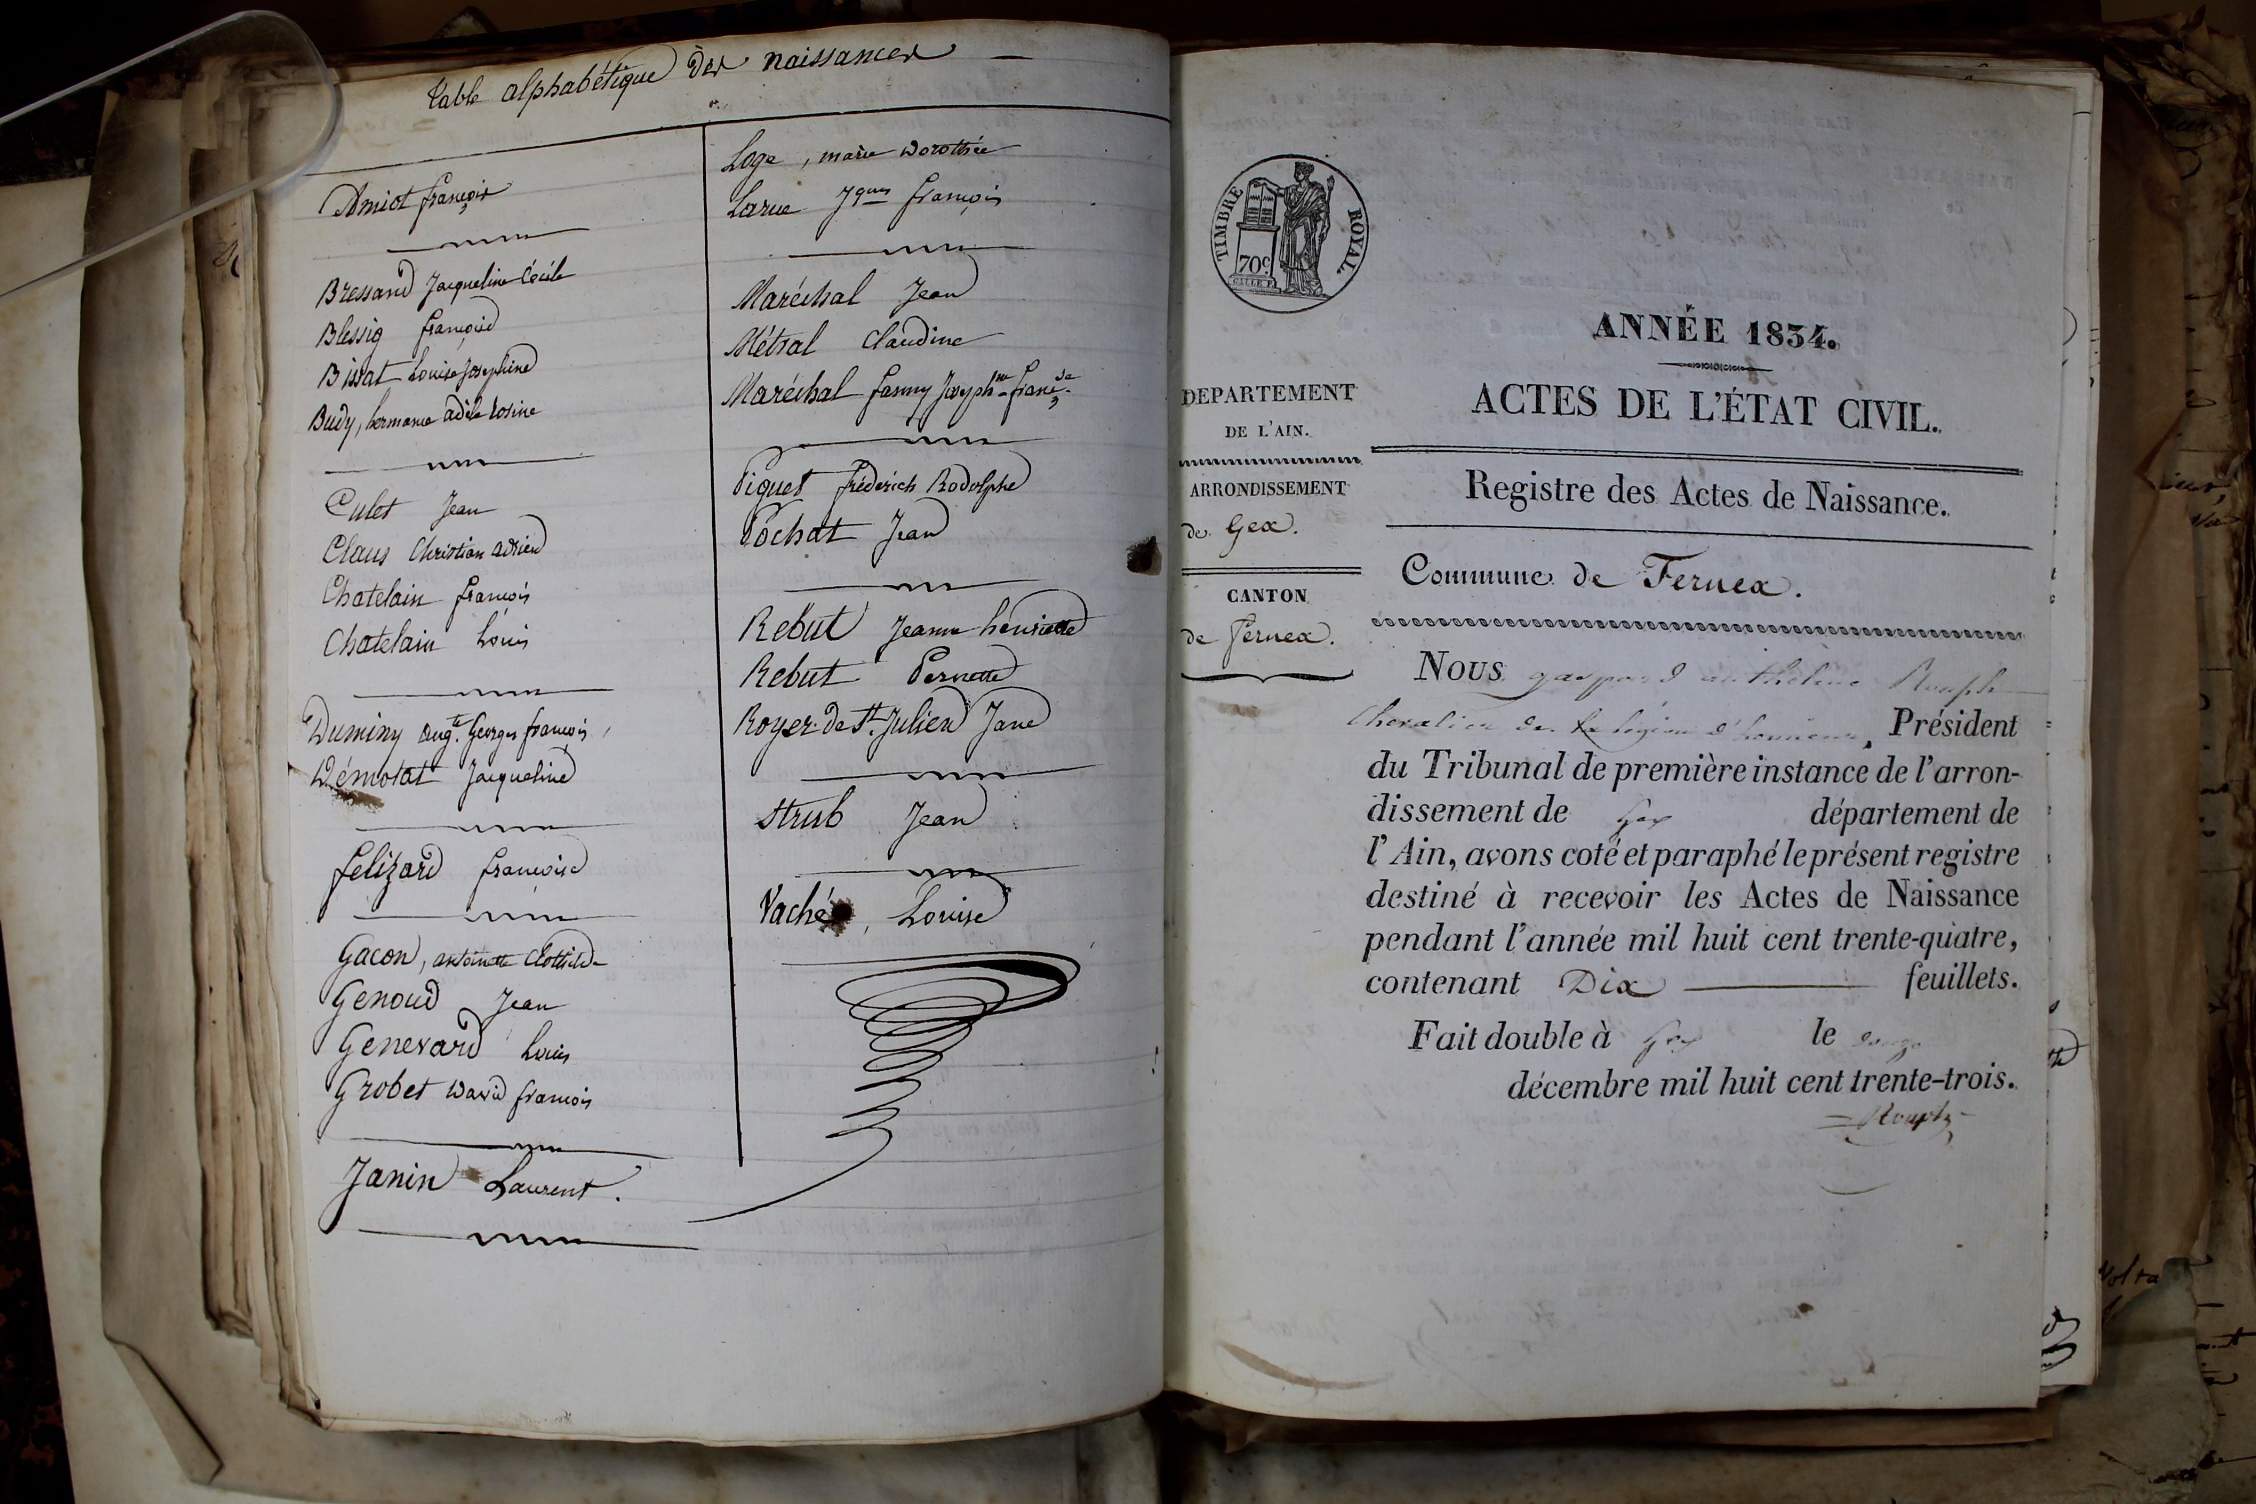 Table alphabétique des naissances
Amiot françois
Bressand Jacqueline Cécile
Blessig françoise
Bissat Louise Josephine
Budy, hermance adèle rosine
Culet Jean
Claus Christian adrien
Chatelain françois
Chatelain Louis
Duminy aug.te Georges françois
Démotat Jacqueline
felizard françoise
Gacon, antoinette Clothilde
Genoud Jean
Genevard Louis
Grobet David françois
Janin Laurent.
Loge, marie Dorothée
Larue Jques françois
Maréchal Jean
Métral Claudine
Maréchal fanny Josephne françse
Piquet fréderich Rodolphe
Pochat Jean
Rebut Jeanne henriette
Rebut Pernette
Royer de St. Julien Jane
Strub Jean
Vaché, Louise
TIMBRE ROYAL.
70c.
ANNÉE 1834.
ACTES DE L'ÉTAT CIVIL.
Registre des Actes de Naissance.
Commune de Fernex.
DEPARTEMENT
DE L'AIN.
ARRONDISSEMENT
de Gex.
CANTON
de fernex.
Nous gaspard anthelme Rouph
Chevalier de la légion d'honneur, Président
du Tribunal de première instance de l'arron-
dissement de Gex département de
l'Ain, avons coté et paraphé le présent registre
destiné à recevoir les Actes de Naissance
pendant l'année mil huit cent trente-quatre,
contenant Dix feuillets.
Fait double à Gex le
décembre mil huit cent trente-trois.